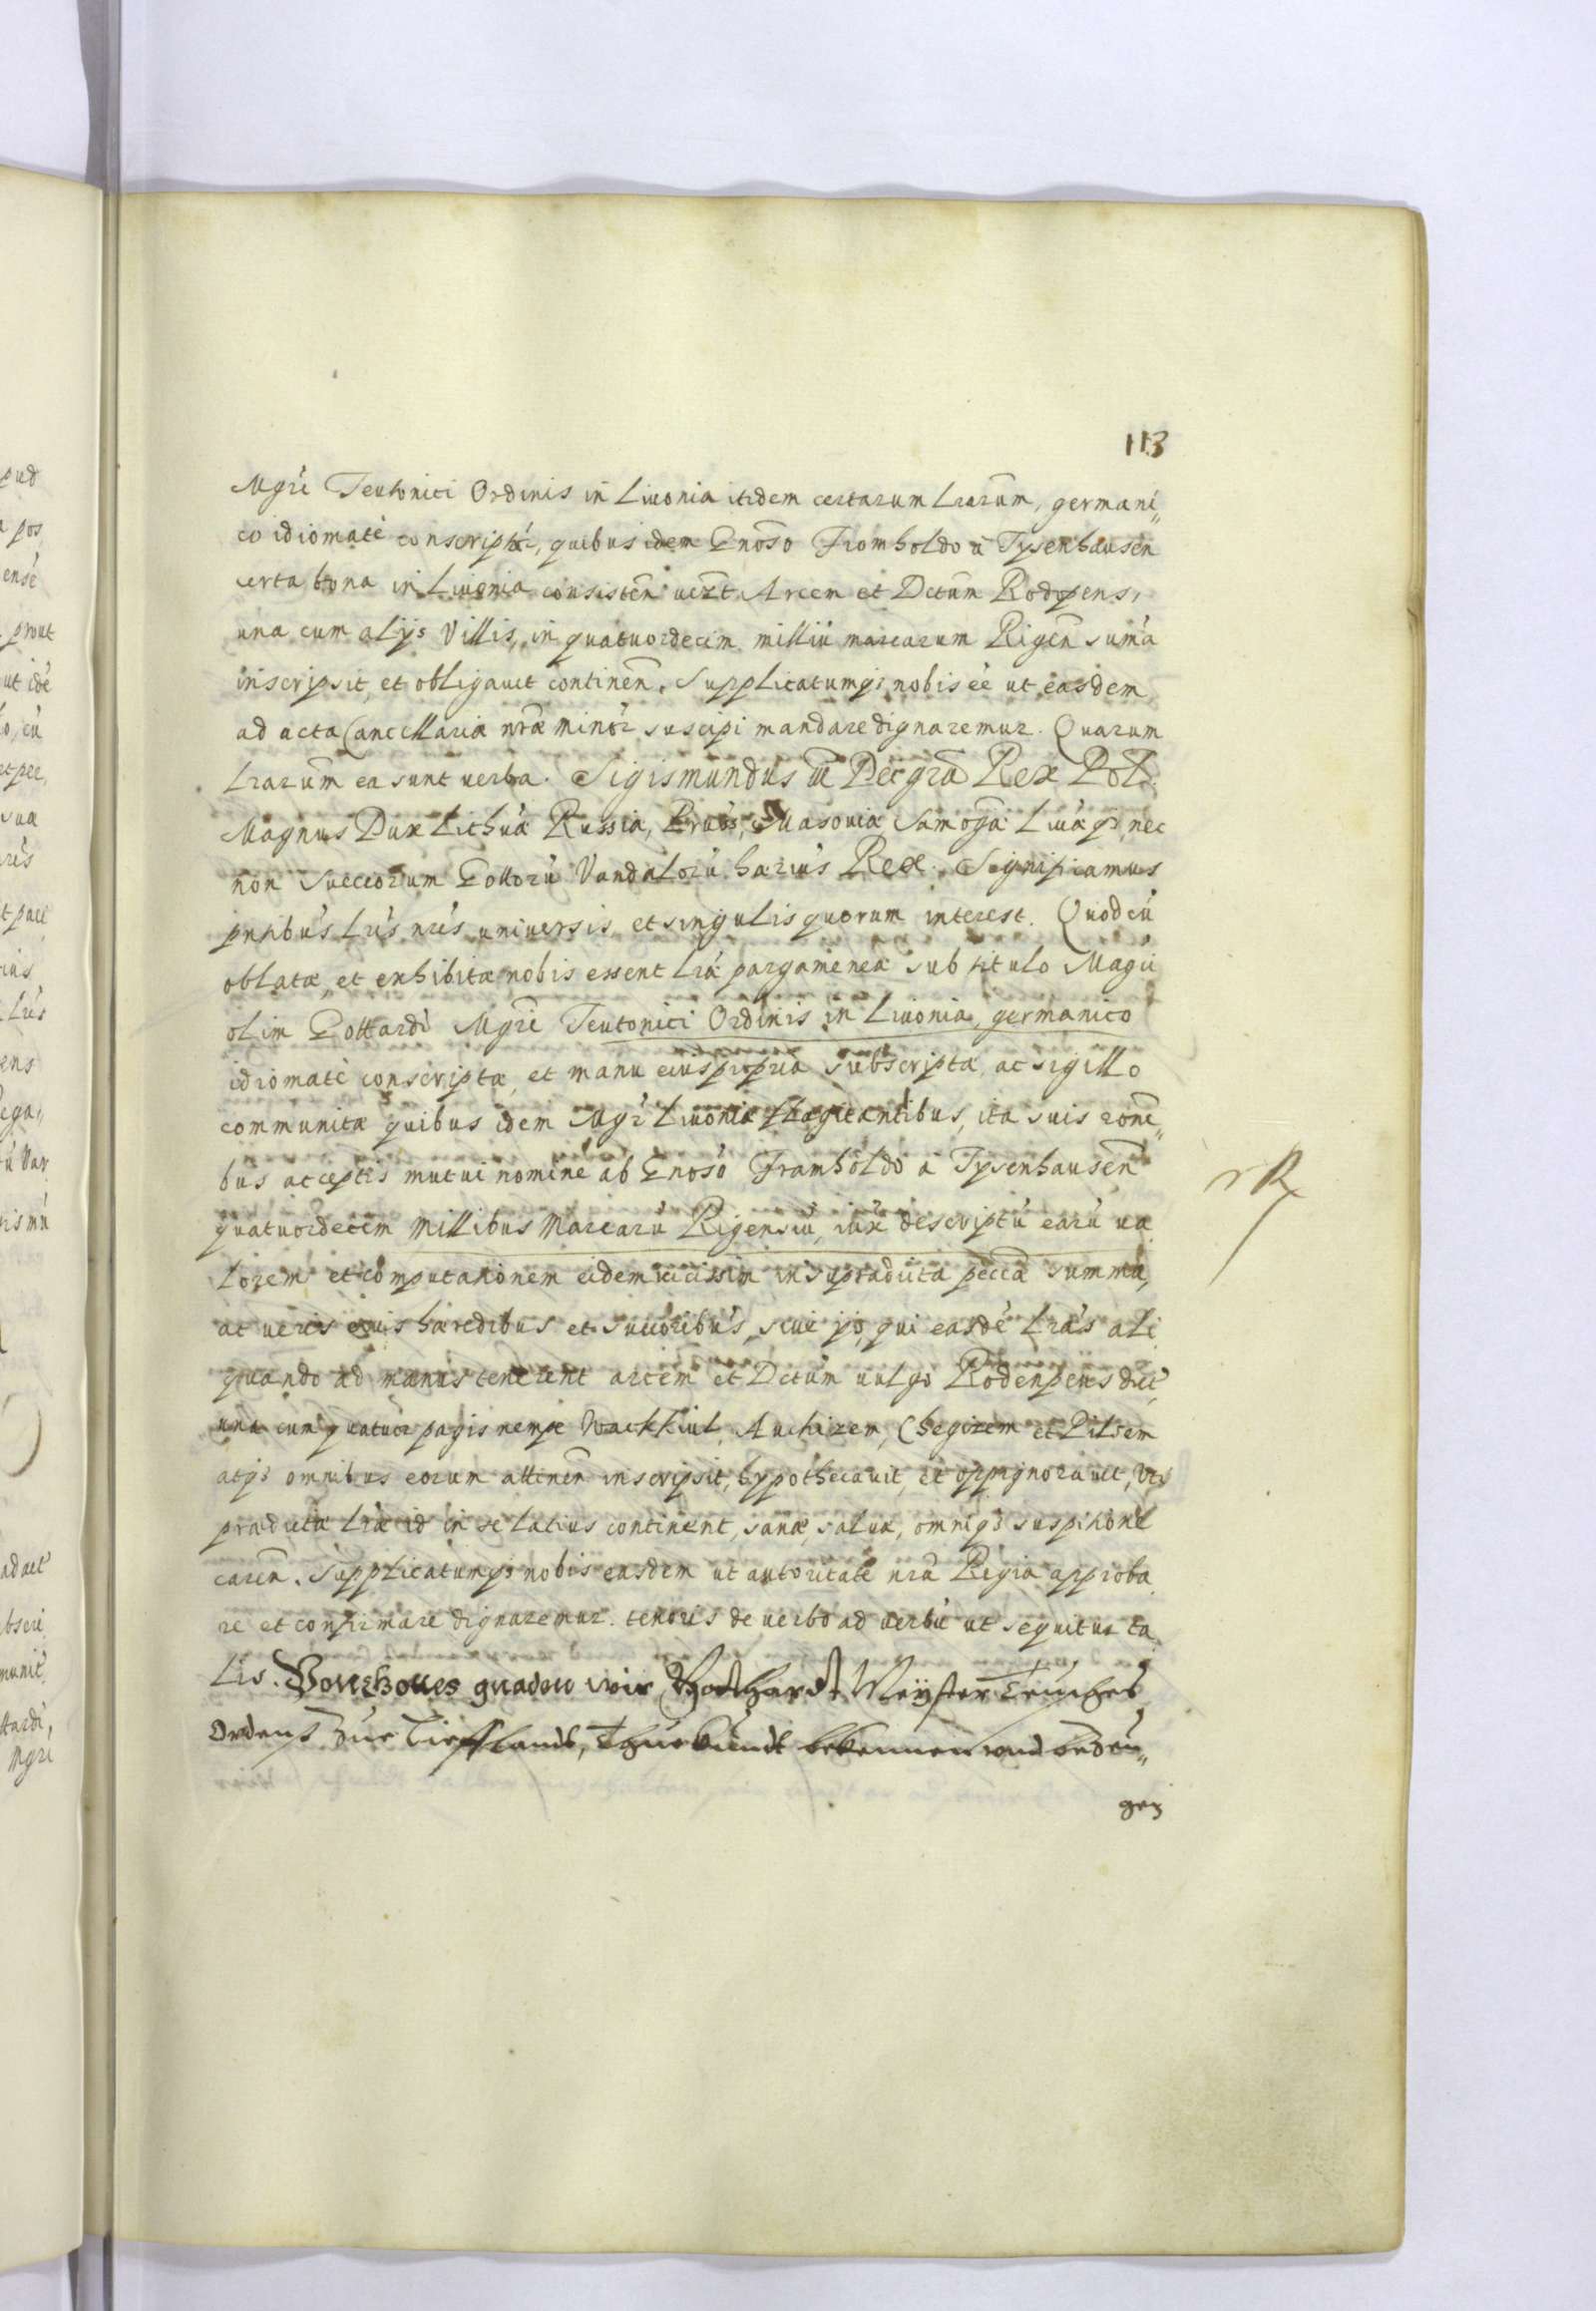 113
Mgri Teutonici Ordinis in Livonia itidem certarum Lrarum, germani„
co idiomate conscriptar, quibus idem Gnoso Fromholdo a Tysenhausen
certa bona in Livonia consisten uezt Arcem et Dctum Rodopens,
una cum alijs Villis, in quatuordecim milliu marcarum Rigen suma
inscripsit, et obligauit continen. Supplicatumq; nobis eē ut easdem
ad acta Cancellaria nrae minor suscipi mandare dignaremur. Quarum
Lrarum ea sunt uerba. Sigismundus III Dei gra Rex Pol:
Magnus Dux Lithua Russia, Prus, Masouia, Samogia Liuaq; nec
non Sueccorum Gottoru Vandaloru harius Rex. Significamus
pntibus Lris nris uniuersis et singulis quorum interest. Quod cu
oblatae, et exhibitae nobis essent Lra pargamenea sub titulo Magii
olim Gottardi Mgri Teutonici Ordinis in Liuonia, germanico
idiomate conscriptae, et manu eius propria subscripta, ac sigillo
communita quibus idem Mgr Liuonia flagitantibus, ita suis rone„
bus acceptis mutui nomine ab Gnoso Framholdo a Tysenhausen
quatuordecem millibus Marcaru Rigensiu, iux descriptu earu ua
lorem et computationem eidem uicissim in supradicta pecca summa,
ac ueris eius haredibus et succoribus, siue ijs, qui easde Lras ali
quando ad manus tenerent arcem et Dctum uulgo Rodenpeus dict
una cum quatuor pagis nempe Wackkiul, Auchirem, Chegirem et Pilsem
atq; omnibus eorum attinen inscripsit, hypothecauit, et oppignorauit, uts
praedicta Lrae id in se latius continent, sanae, saluae, omniq; suspitione
caren. Supplicatumq; nobis easdem ut autoritate nra Regia approba
re et confirmare dignaremur. tenoris de uerbo ad uerbu ut sequitur ta
lis. Von Gottes gnaden wir Gotthardt Meyster Teutsches
Ordens zue Liefflandt, Thue kundt bekennen und bezeu„
gen